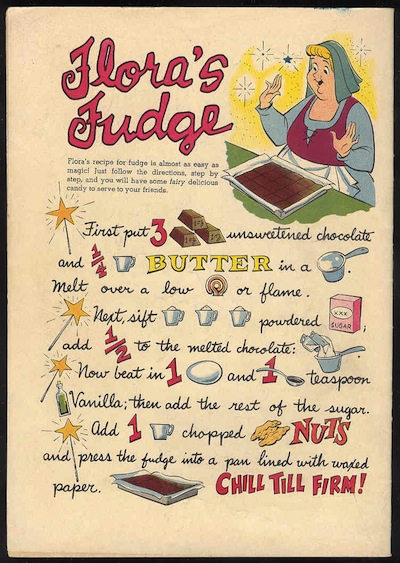 Flora's
Fudge
Flora's recipe for fudge is almost as easy as
magic! Just follow the directions, step by
step, and you will have some fairy delicious
candy to serve to your friends.
First put 3 unsweetened chocolate
and 1/4 BUTTER in a .
Melt over a low or flame.
Next, sift powdered XXX SUGAR ;
add 1/2 to the melted chocolate:
Now beat in 1 and 1 teaspoon
Vanilla; then add the rest of the sugar.
Add 1 chopped NUTS
and press the fudge into a pan lined with waxed
paper. CHILL TILL FIRM!